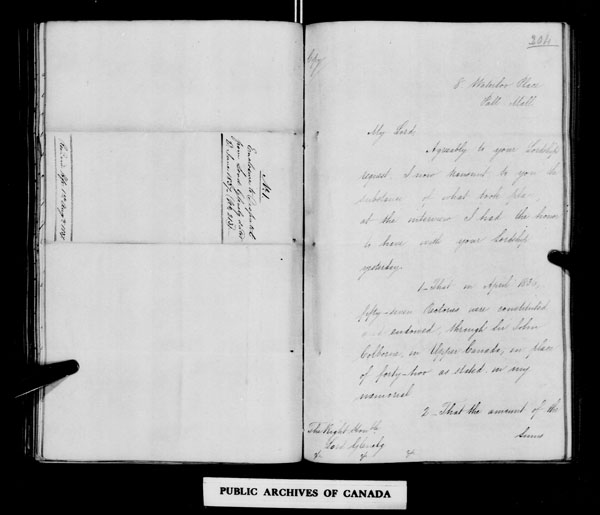 No 1.
Enclosure to Despatch
from Lord Glenelg dated
Copy
204
8 Waterloo Place
Pall Mall
My Lord
Agreably to your Lordship's
request, I now transmit to you the
substance of what took place
at the interview I had the honor
to have with your Lordship
yesterday.
1 – That in April
fifty-seven Rectories were constituted
and endowed, through Sir John
Colborne, in Upper Canada, in place
of forty-two as stated in my
memorial
2 – That the amount of the
Sums
The Right Honble
Lord Glenelg
&c &c &c
PUBLIC ARCHIVES OF CANADA